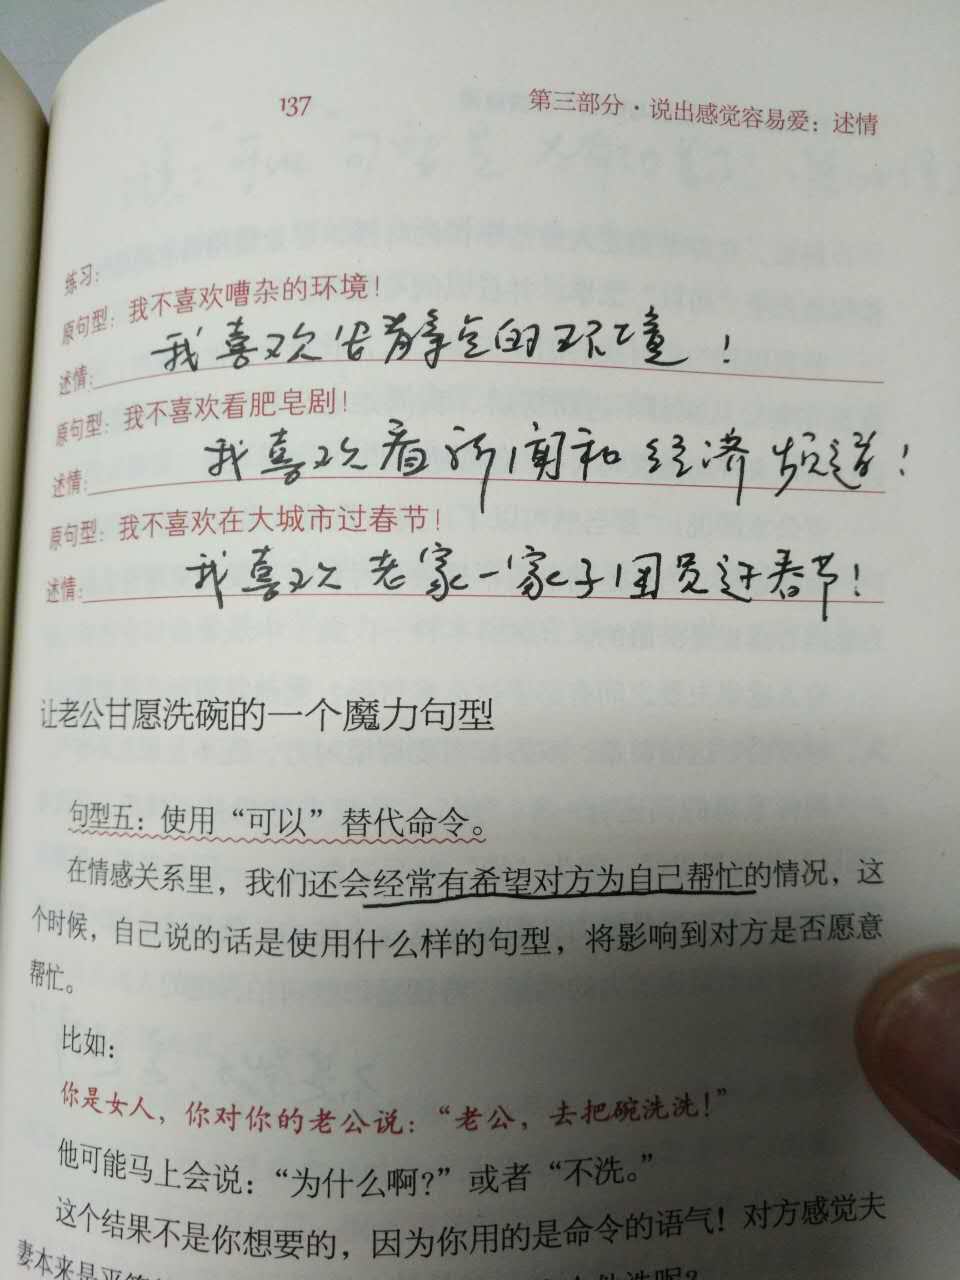 137
第三部分·说出感觉容易爱：述情
练习：
原句型：我不喜欢嘈杂的环境！
述情：我喜欢安静的环境！
原句型：我不喜欢看肥皂剧！
述情：我喜欢看新闻和经济频道！
原句型：我不喜欢在大城市过春节！
述情：我喜欢老家一家子团员过春节！
让老公甘愿洗碗的一个魔力句型
句型五：使用“可以”替代命令。
在情感关系里，我们还会经常有希望对方为自己帮忙的情况，这
个时候，自己说的话是使用什么样的句型，将影响到对方是否愿意
帮忙。
比如：
你是女人，你对你的老公说：“老公，去把碗洗洗！”
他可能马上会说：“为什么啊？”或者“不洗。”
这个结果不是你想要的，因为你用的是命令的语气！对方感觉夫
妻本来是平等